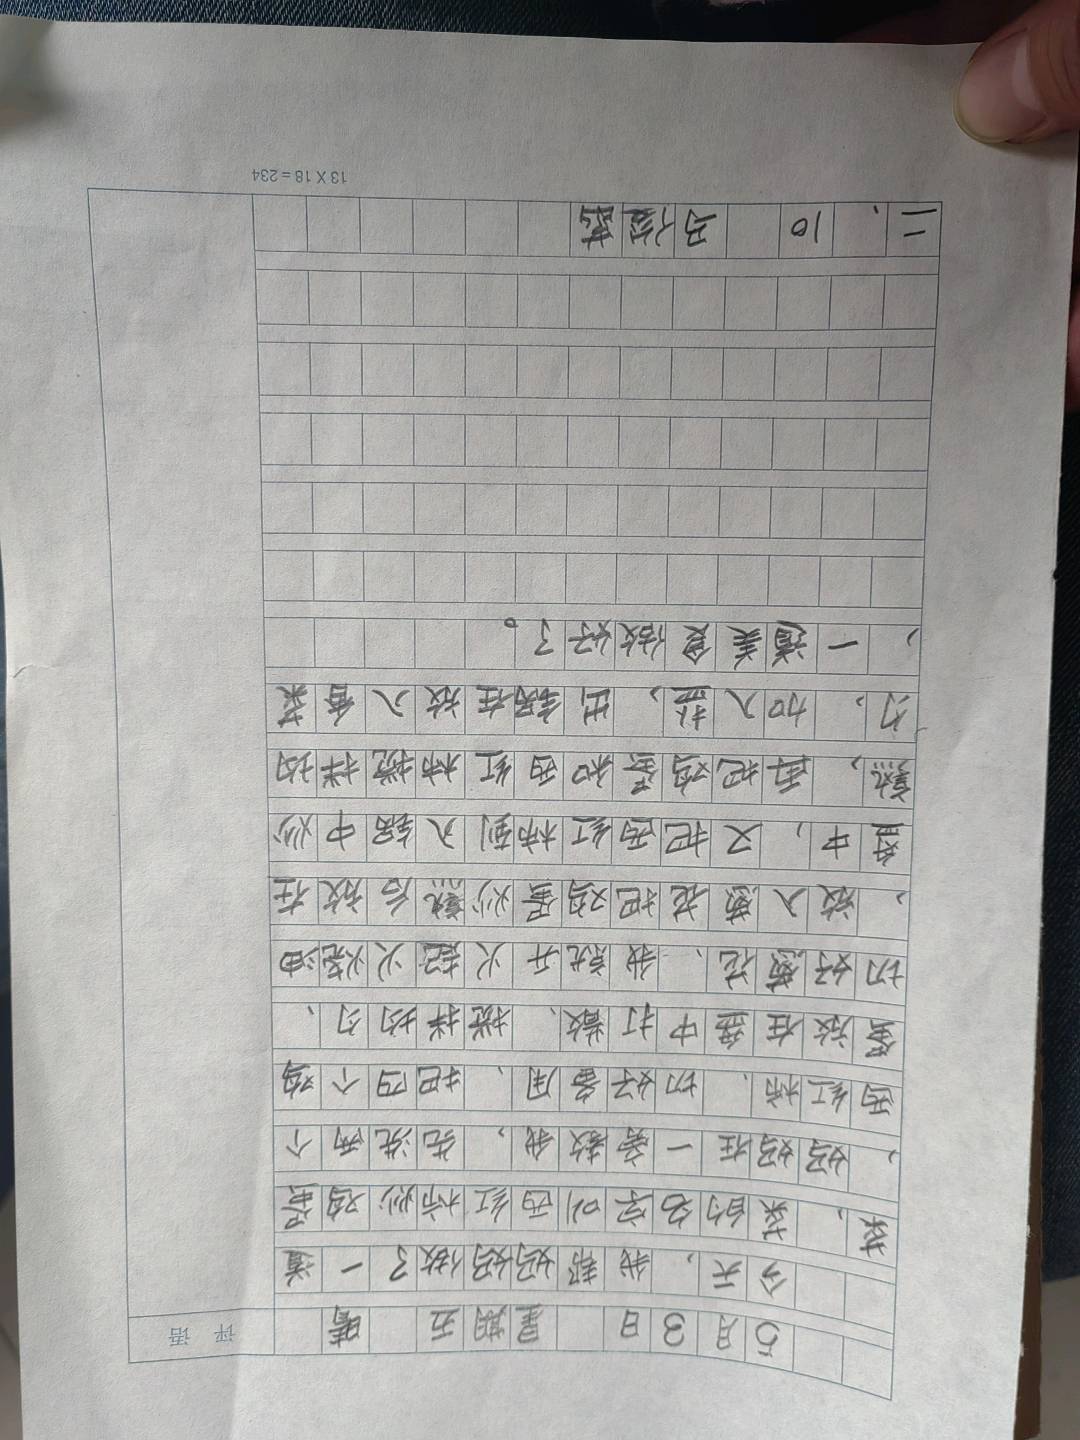 评语
5月3日 星期五 晴
今天，我帮妈妈做了一道
菜、菜的名字叫西红柿炒鸡蛋
，妈妈在一旁教我、先洗两个
西红柿、切好备用、把四个鸡
蛋放在盆中打散、搅拌均匀、
切好葱花、我就开火起火烧油
、放入葱花把鸡蛋炒熟后放在
盘中，又把西红柿到入锅中炒
熟，再把鸡蛋和西红柿搅拌均
匀、加入盐，出锅在放入香菜
，一道美食做好了。
二、10 马俊
13×18=234